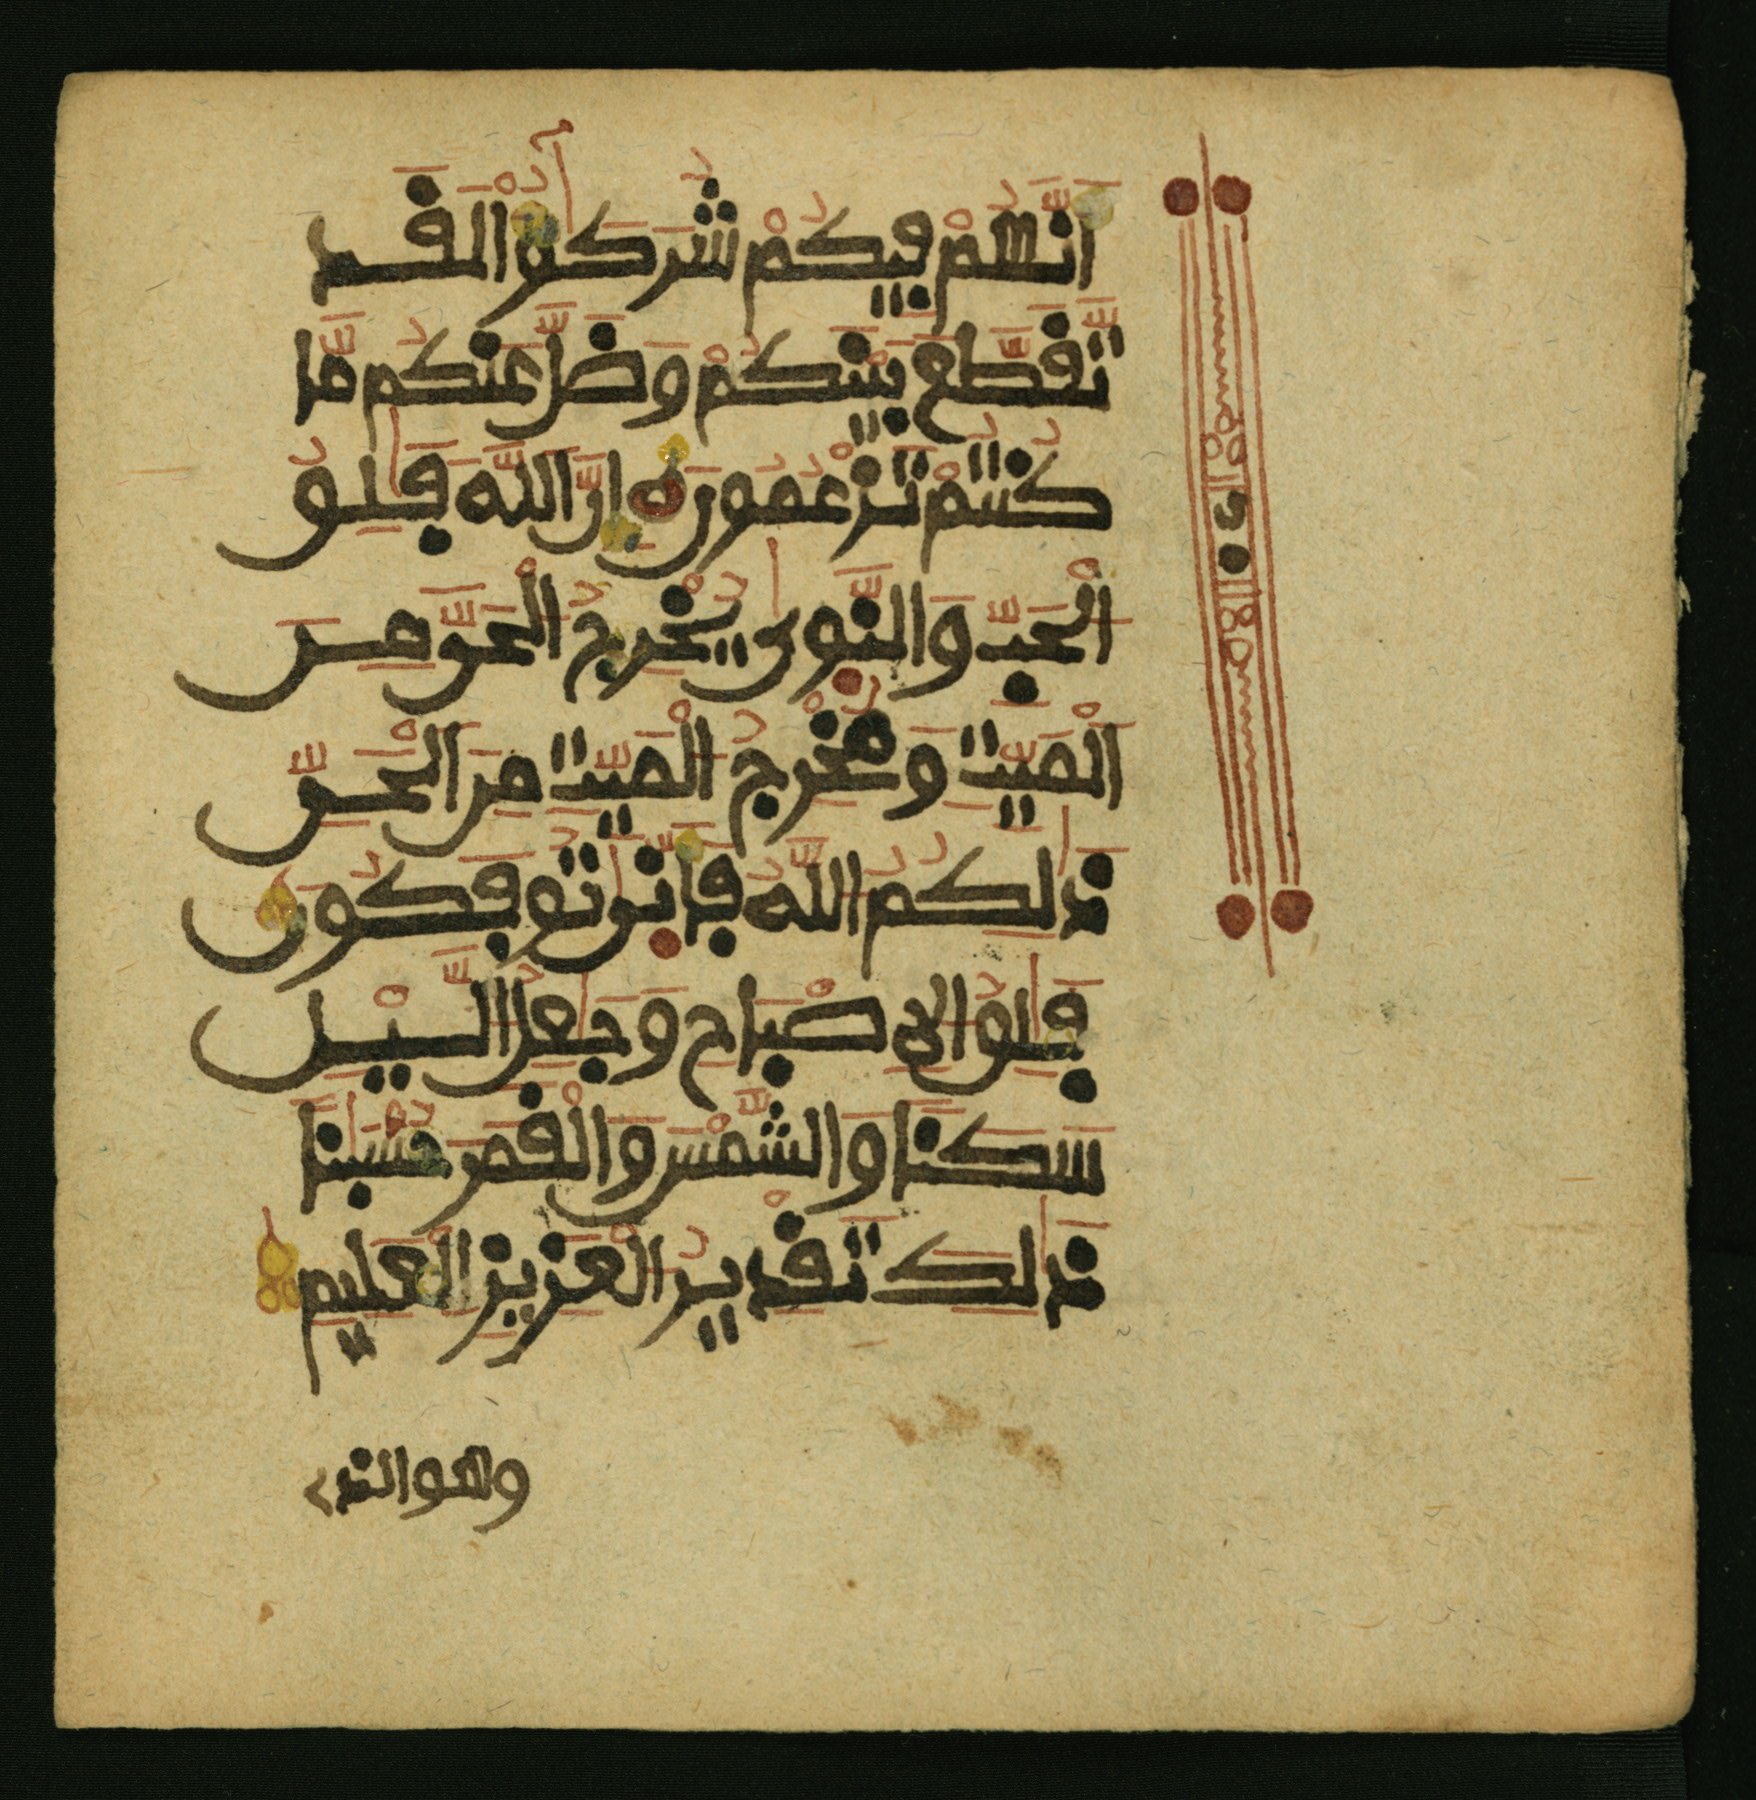 أَنَّهُمْ فِيكُمْ شُرَكَٰٓؤُا لَقَد
تَّقَطَّعَ بَيْنَكُمْ وَضَلَّ عَنكُم مَّا
كُنتُمْ تَزْعُمُونَ إِنَّ اللَّهَ فَٰلِقُ
الْحَبِّ وَالنَّوَىٰ يُخْرِجُ الْحَيَّ مِنَ
الْمَيِّتِ وَمُخْرِجُ الْمَيِّتِ مِنَ الْحَيِّ
ذَٰلِكُمُ اللَّهُ فَأَنَّىٰ تُوفَكُونَ
فَٰلِقُ الاِصْبَاحِ وَجَٰعِلُ الَّيْلِ
سَكَنًا وَالشَّمْسَ وَالْقَمَرَ حُسْبَٰنًا
ذَٰلِكَ تَقْدِيرُ الْعَزِيزِ الْعَلِيمِ
وهو الذي